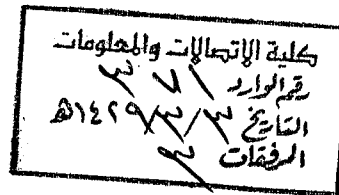 كلية الاتصالات والمعلومات
رقم الوارد ٣٧١
التاريخ ٣/٣/١٤٢٩هـ
المرفقات ٣